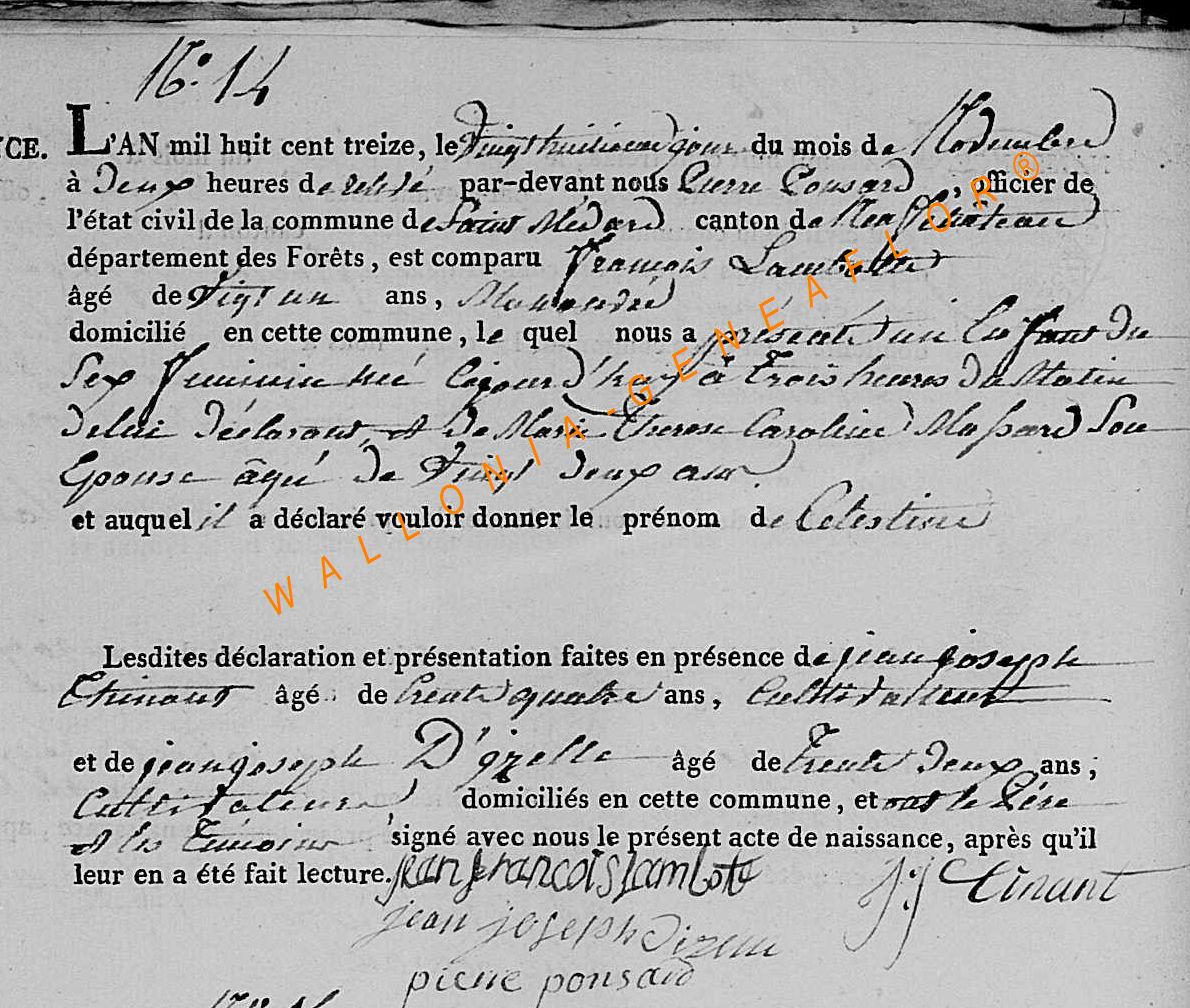 N.º 14
NCE. L'AN mil huit cent treize, le Vingt huitieme jour du mois de Novembre
à deux heures de relevé par-devant nous Pierre Ponsard, officier de
l'état civil de la commune de Saint Médard canton de Neufchâteau
département des Forêts, est comparu françois Lambotte
âgé de Vigt un ans,
domicilié en cette commune, le quel nous a présenté un Enfant du
Sex Feminin né Cejourd'huy à trois heures du Matin
de lui déclarant, et de Marie Therese Caroline Massard Son
Epouse âgé de Vingt deux ans.
et auquel il a déclaré vouloir donner le prénom de Celestine
WALLONIA-GENEAFLOR®
Lesdites déclaration et présentation faites en présence de jean joseph
Thinant âgé de trente quatre ans, Cultivateur
et de jean joseph D'izelle âgé de trente deux ans,
Cultivateur domiciliés en cette commune, et ont le Père
et les Témoins signé avec nous le présent acte de naissance, après qu'il
leur en a été fait lecture. jean francois lambote
j:j Tinant
jean joseph dizelle
pierre ponsard